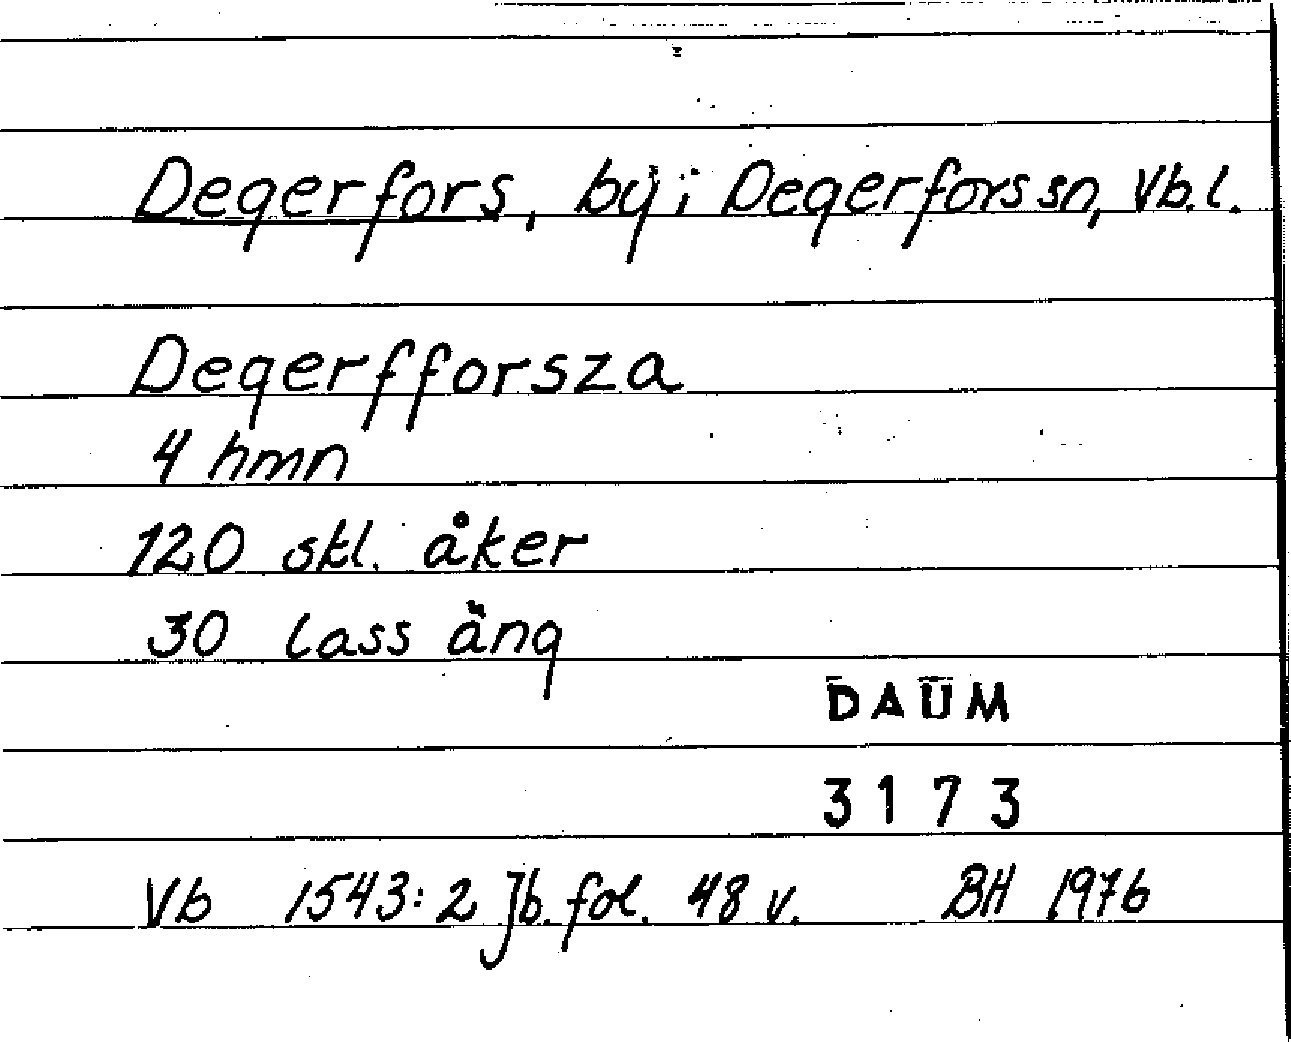 Degerfors, by i Degerfors sn, Vb.l.
Degerfforsza
4 hmn
120 skl. åker
30 lass äng
DAUM
3173
Vb 1543:2 Jb. fol. 48 v. BH 1976